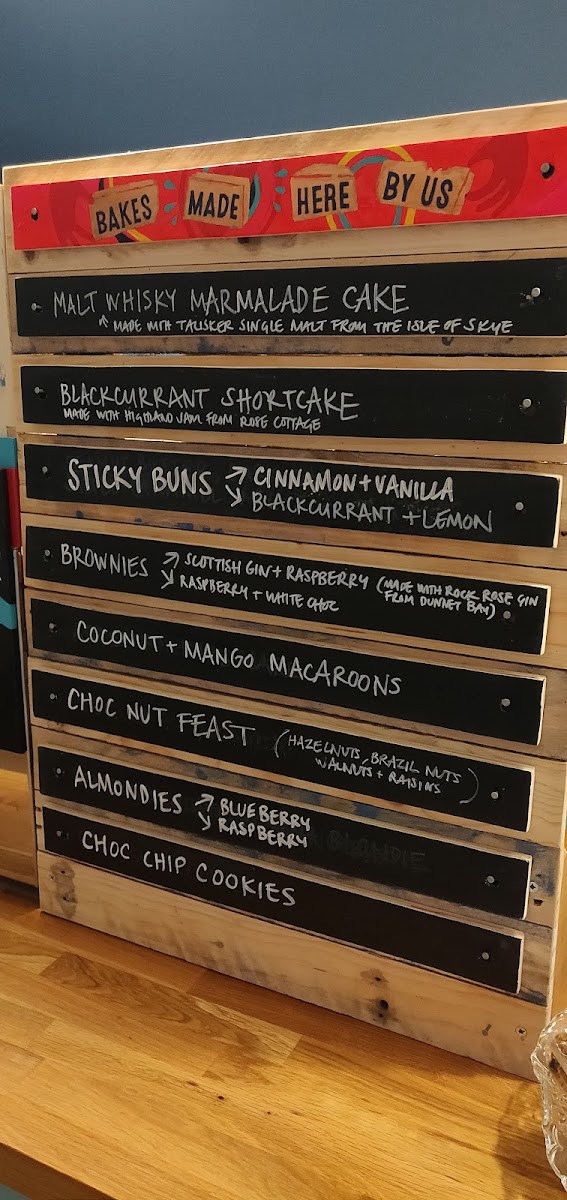 BAKES MADE HERE BY US
MALT WHISKY MARMALADE CAKE
↖ MADE WITH TALISKER SINGLE MALT FROM THE ISLE OF SKYE
BLACKCURRANT SHORTCAKE
MADE WITH HIGHLAND JAM FROM ROSE COTTAGE
STICKY BUNS ↗ CINNAMON + VANILLA
↘ BLACKCURRANT + LEMON
BROWNIES ↗ SCOTTISH GIN + RASPBERRY (MADE WITH ROCK ROSE GIN
↘ RASPBERRY + WHITE CHOC FROM DUNNET BAY)
COCONUT + MANGO MACAROONS
CHOC NUT FEAST (HAZELNUTS, BRAZIL NUTS
WALNUTS + RAISINS)
ALMONDIES ↗ BLUEBERRY
↘ RASPBERRY BLANDIE
CHOC CHIP COOKIES